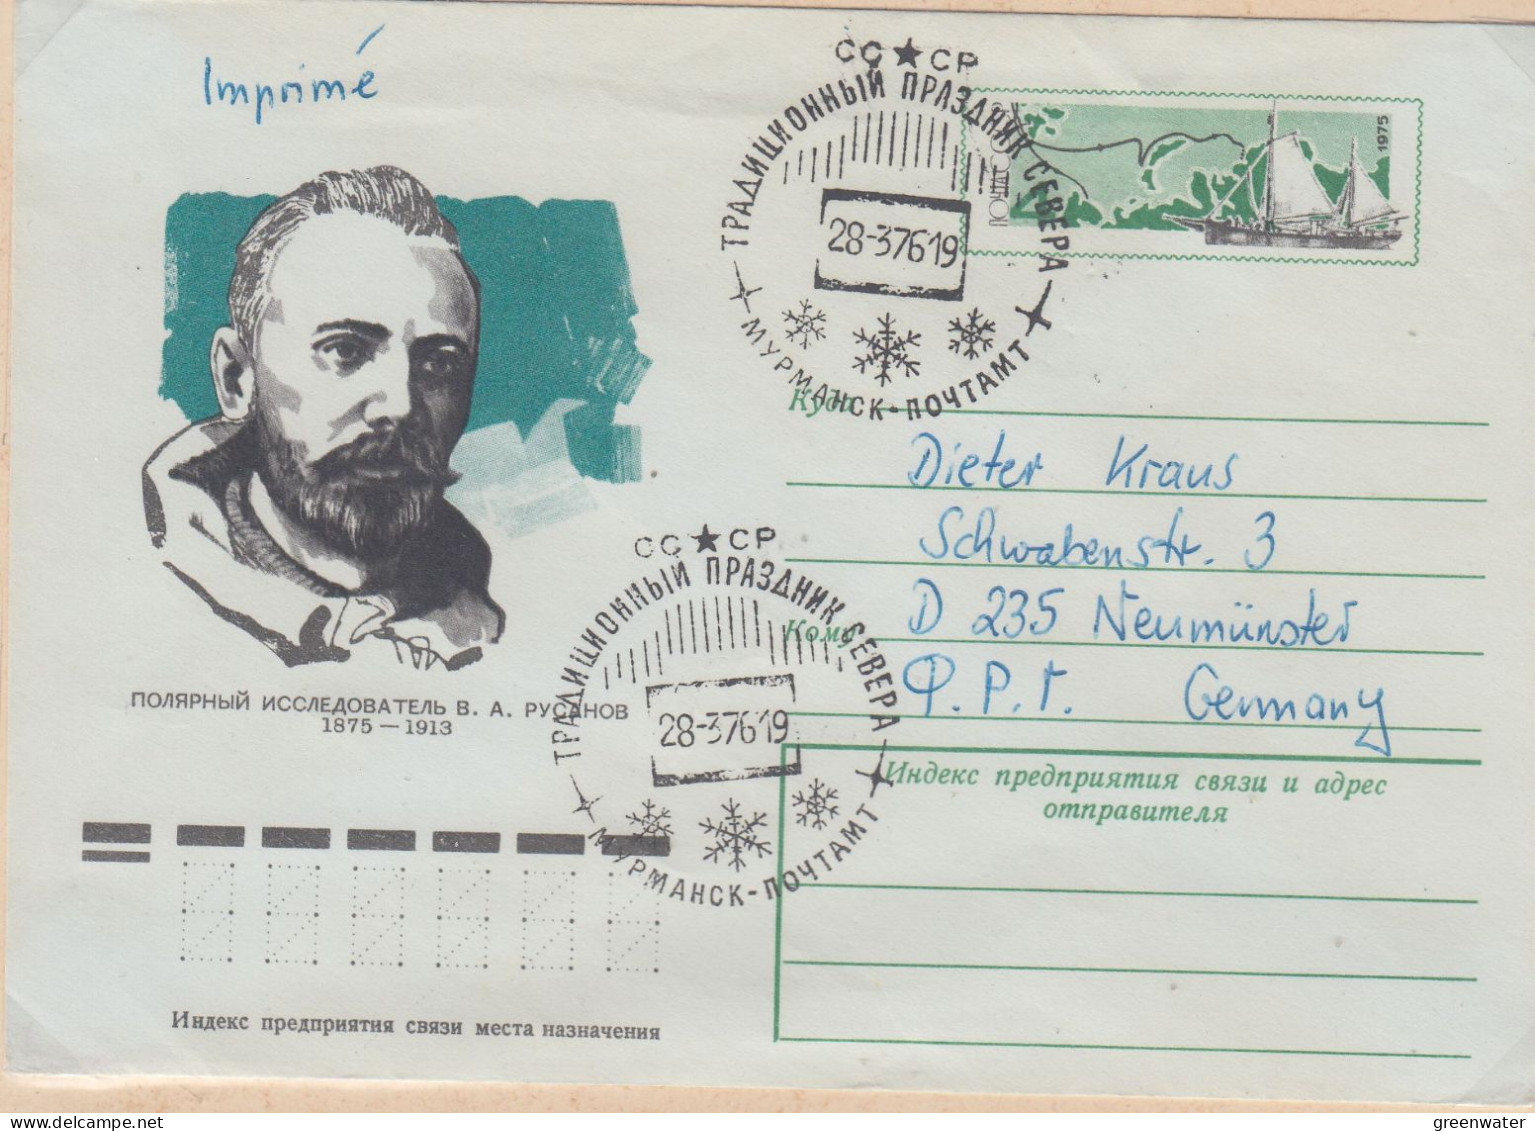 Imprimé
СС★СР
ТРАДИЦИОННЫЙ ПРАЗДНИК СЕВЕРА
28-37619
МУРМАНСК-ПОЧТАМТ
1975
Куда
Dieter Kraus
Schwabenstr. 3
D 235 Neumünster
Ф.Р.Г. Germany
Кому
СС★СР
ТРАДИЦИОННЫЙ ПРАЗДНИК СЕВЕРА
28-37619
МУРМАНСК-ПОЧТАМТ
ПОЛЯРНЫЙ ИССЛЕДОВАТЕЛЬ В. А. РУСАНОВ
1875—1913
Индекс предприятия связи и адрес
отправителя
Индекс предприятия связи места назначения
greenwater